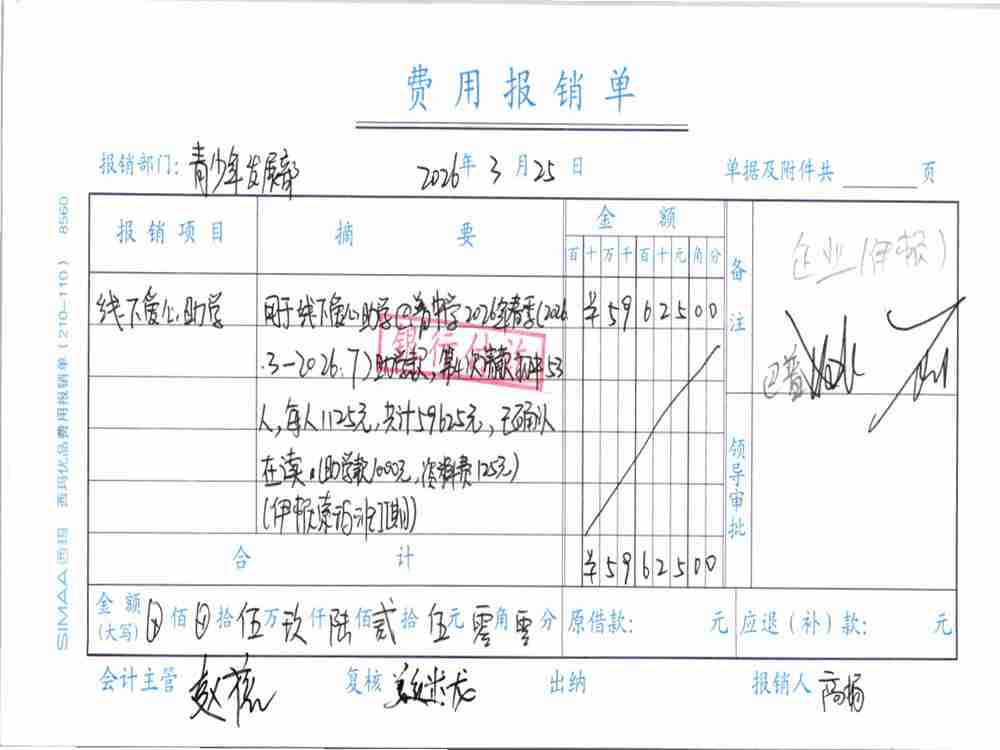 费用报销单
报销部门: 青少年发展部 2026年 3 月 25 日 单据及附件共 页
报销项目 摘要 金额 备注
百 十 万 千 百 十 元 角 分
企业(伊报)
线下爱心助学 用于线下爱心助学巴普中学2026年春季(2026 ¥5962500
.3-2026.7)助学款,第4次请款,初中53
银行付讫
人,每人1125元,共计59625元,已确认
在读。(助学款1000元,资料费125元)
巴普
领导审批
合计 ¥5962500
金额(大写) 佰 拾 伍万 玖仟 陆佰 贰拾 伍元 零角 零分 原借款: 元 应退(补)款: 元
会计主管 复核 出纳 报销人 高杨
SIMAA 西玛 西玛优品费用报销单(210-110) 8560